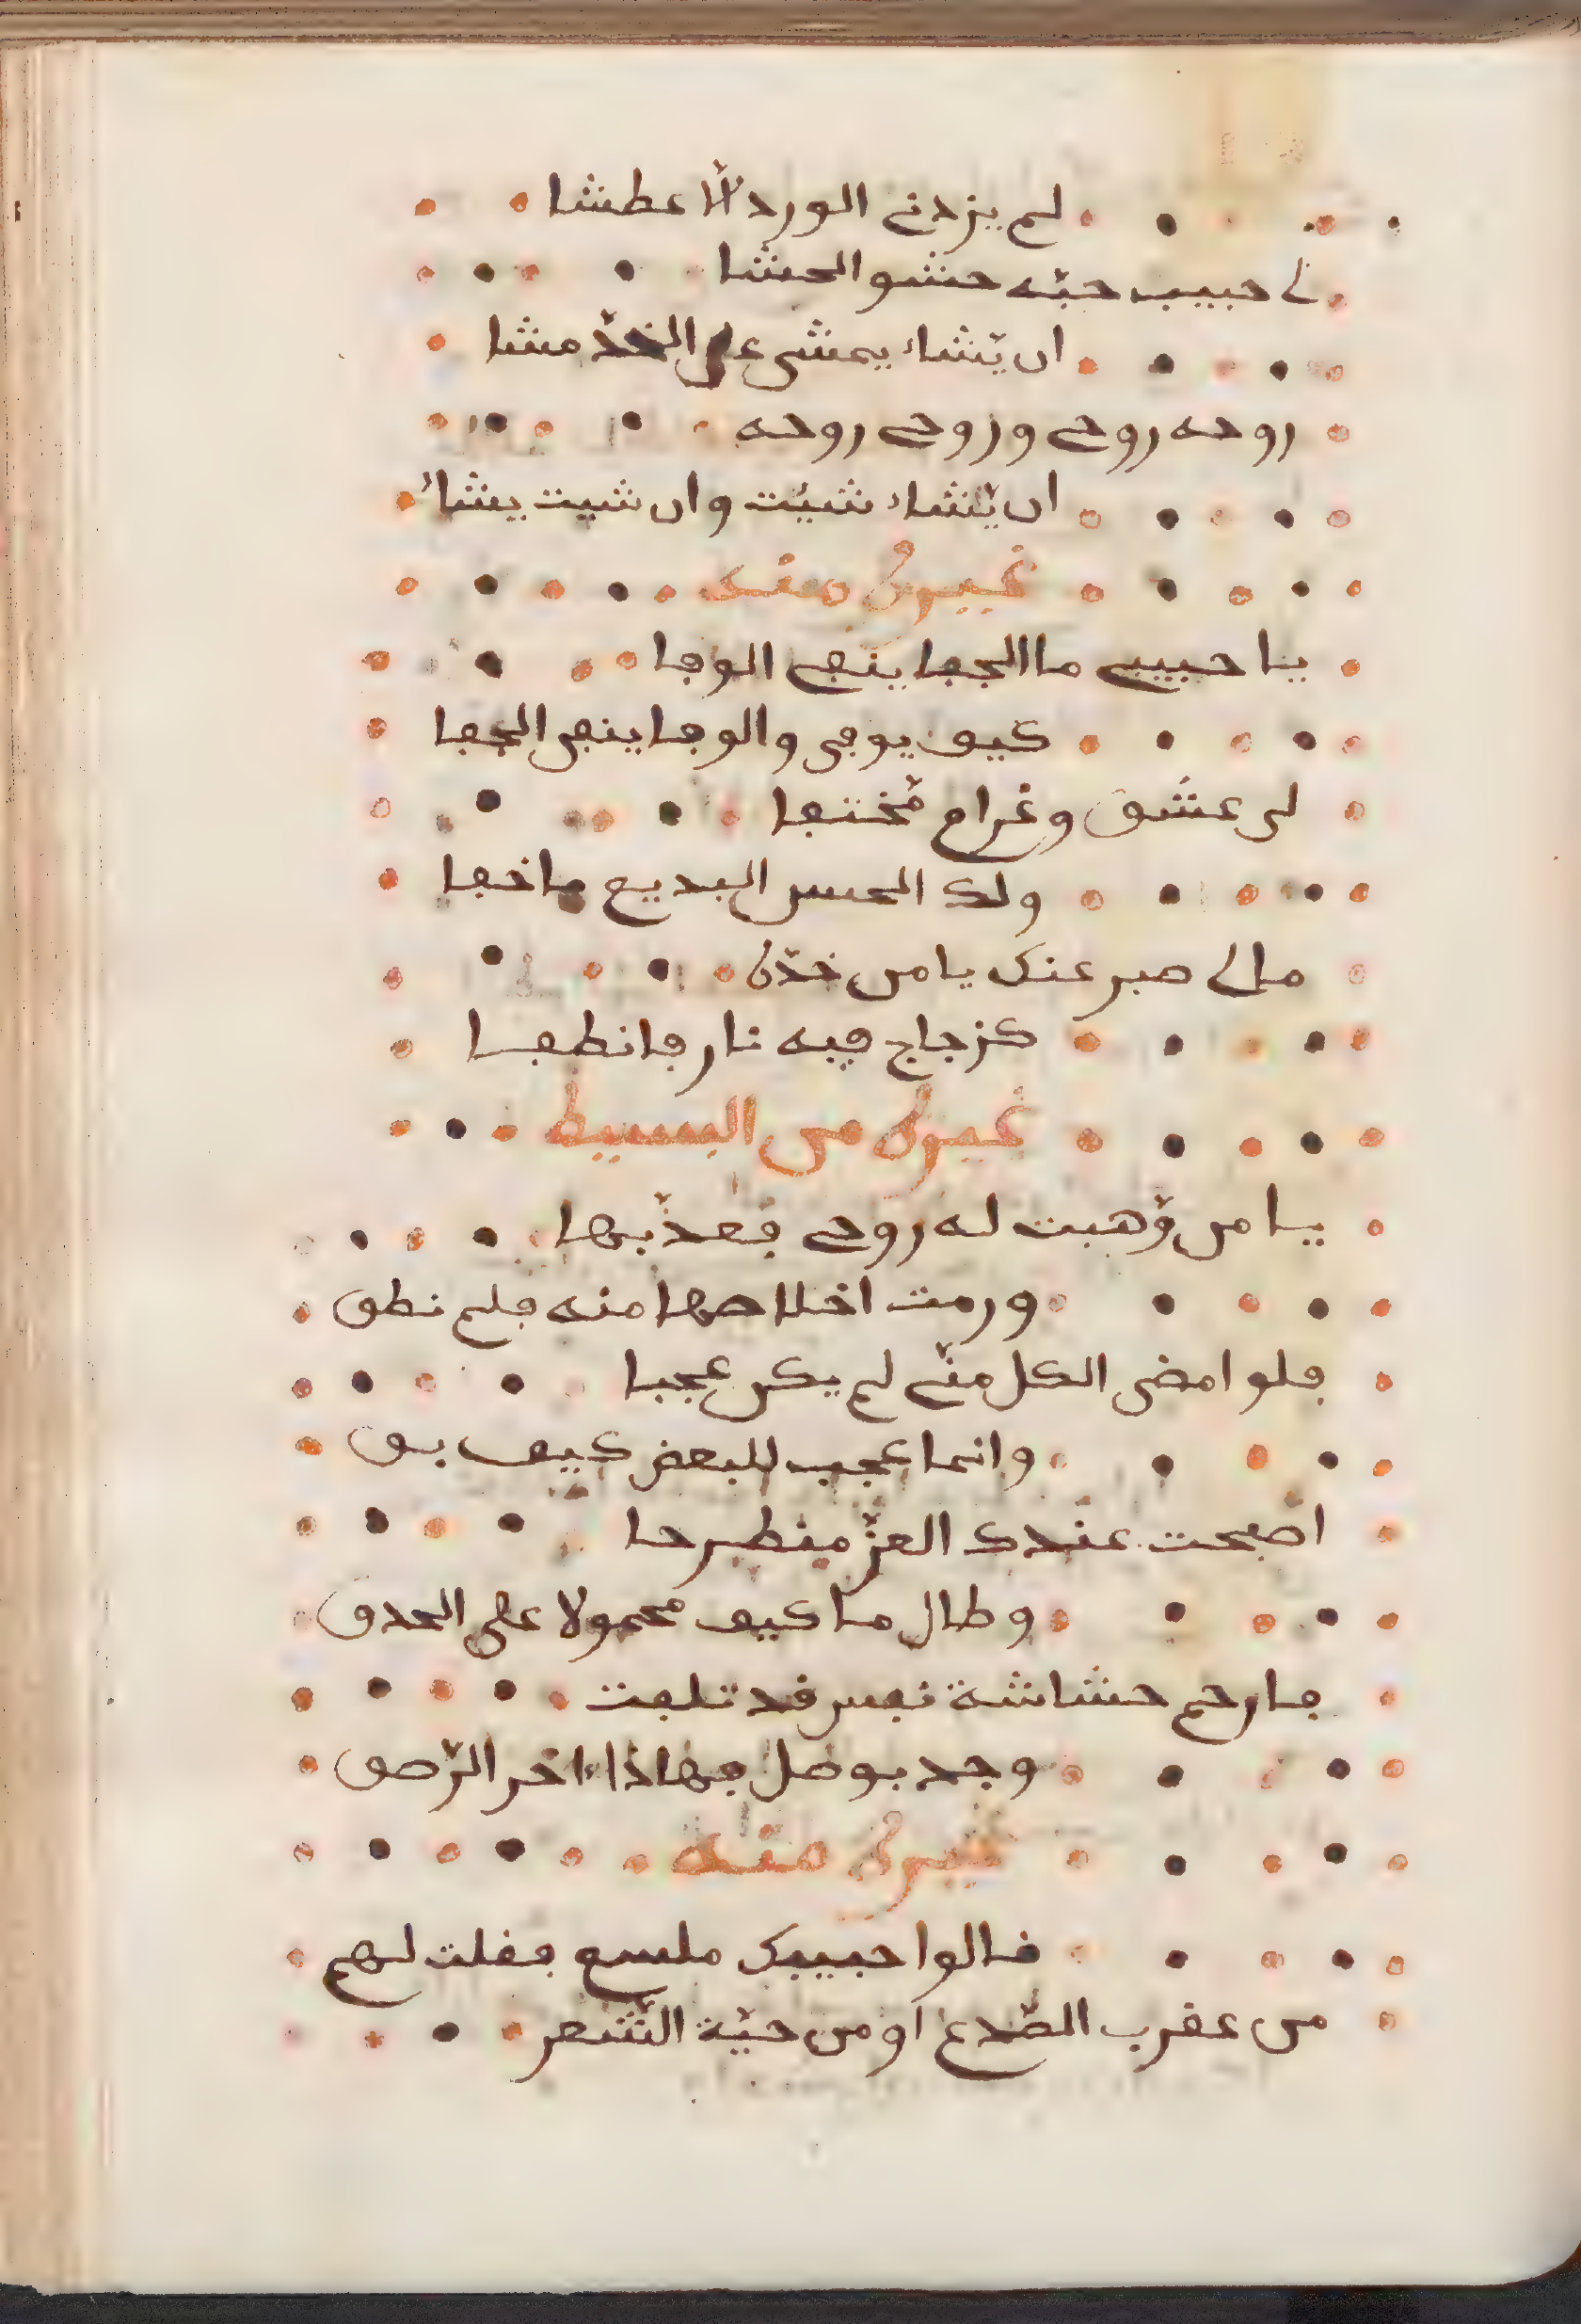 لم يزدني الورد الّا عطشا
لي حبيب حبّه حشو الحشا
ان يّشاء يمشي على الخدّ مشا
روحه روحي وروحي روحه
ان يّشاء شيئت وان شيت يشاء
غيره منه
يا حبيبي ما الجفا ينفي الوفا
كيف يوفى والوفا ينفى الجفا
لى عشق وغرام مّختفا
ولك الحسن البديع ما خفا
ما لي صبر عنك يا من خدّه
كزجاج فيه نار فانطفا
غيره من البسيط
يا من وّهبت له روحي فعذّبها
ورمت اخلاصها منه فلم نطق
فلو امضى الكل منّي لم يكن عجبا
وانما عجب للبعض كيف بق
اصبحت عندك العزّ منطرحا
وطال ما كيف محمولا على الحدق
فارحم حشاشة نفس قد تلفت
وجد بوصل فهاذا ءاخر الرّمق
غيره منه
قالوا حبيبك ملسع فقلت لهم
من عقرب الصّدع او من حيّة الشّعر